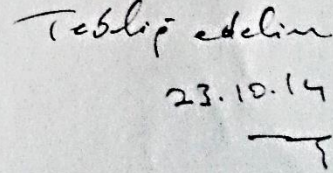 Tebliğ edelim
23.10.14